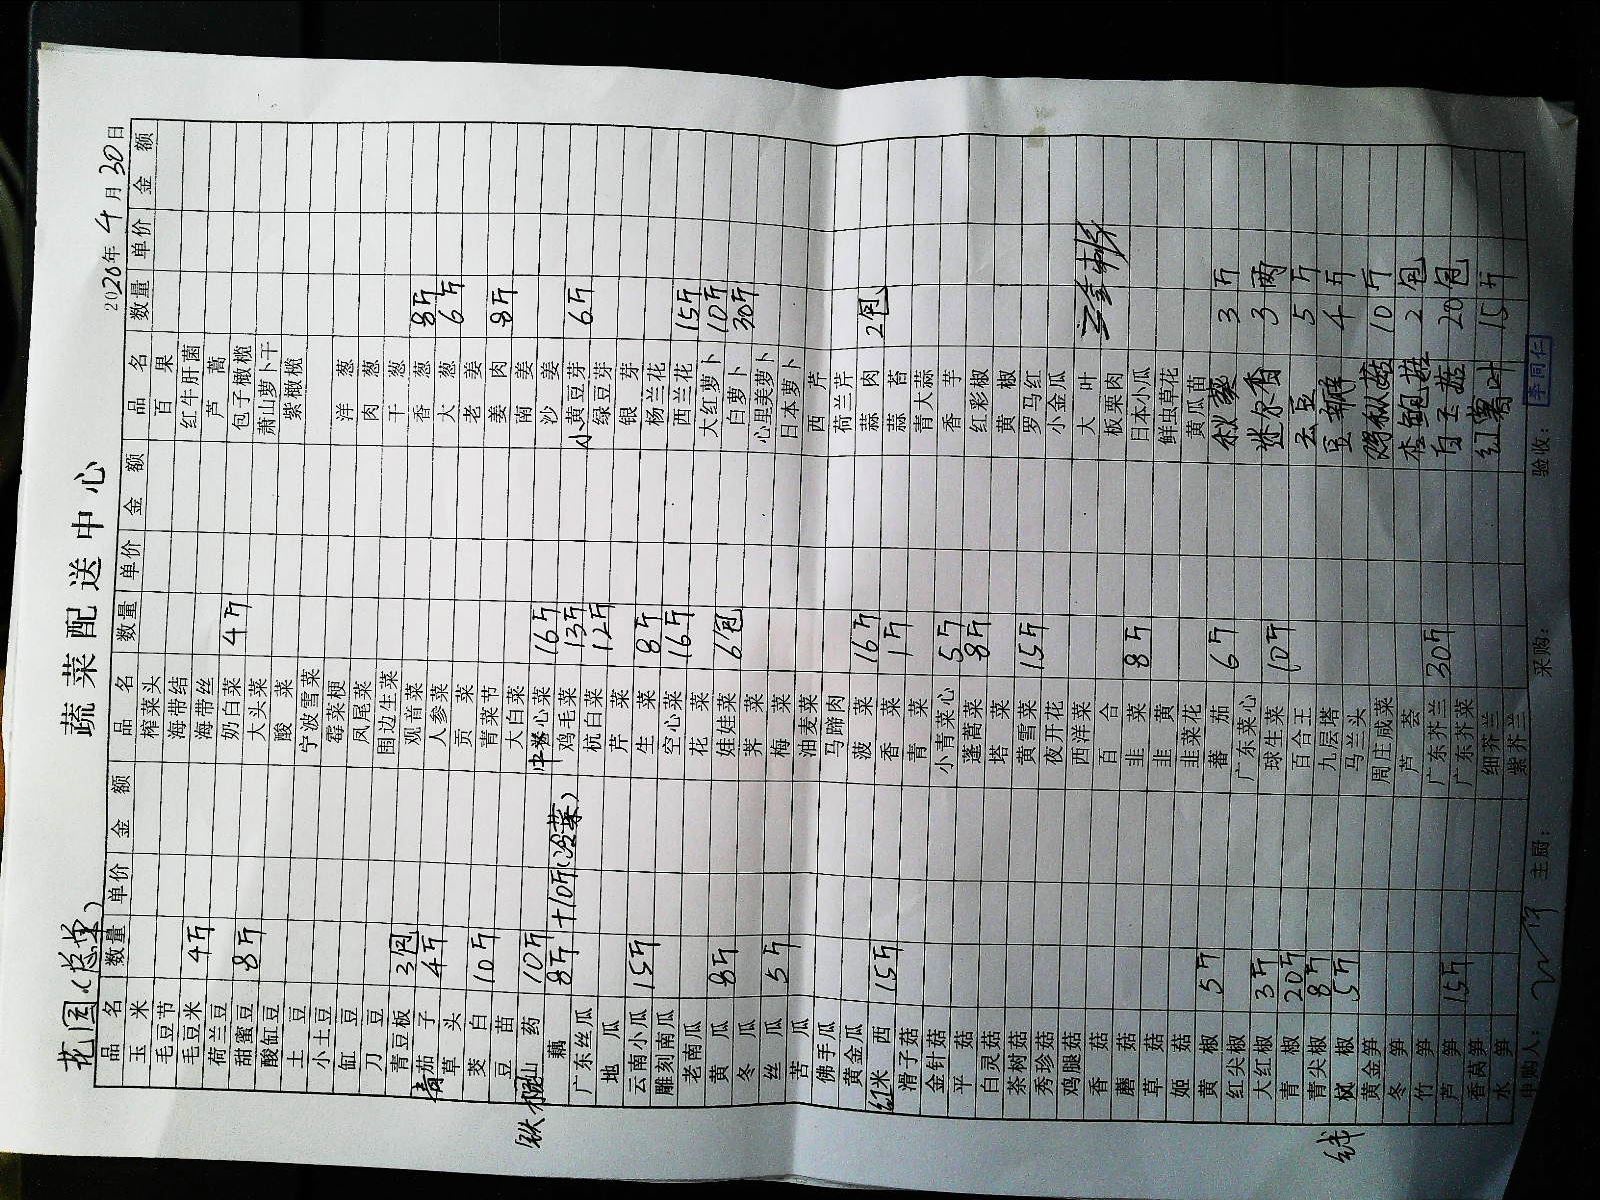 花园(总单)
蔬菜配送中心
2020年4月30日
品名 数量 单价 金额 品名 数量 单价 金额 品名 数量 单价 金额
玉米 榨菜头 百果
毛豆节 海带结 红牛肝菌
毛豆米 4斤 海带丝 芦蒿
荷兰豆 奶白菜 4斤 包子橄榄
甜蜜豆 8斤 大头菜 萧山萝卜干
酸缸豆 酸菜 紫橄榄
土豆 宁波雪菜
小土豆 霉菜梗 洋葱
缸豆 凤尾菜 肉葱
刀豆 围边生菜 干葱
青豆板 3包 观音菜 香葱 8斤
青茄子 4斤 人参菜 大葱 6斤
草头 贡菜 老姜
茭白 10斤 青菜节 姜肉 8斤
豆苗 大白菜 南姜
铁棍山药 10斤 卷心菜 16斤 沙姜
藕 8斤+10斤(冷菜) 鸡毛菜 13斤 小黄豆芽 6斤
广东丝瓜 杭白菜 12斤 绿豆芽
地瓜 芹菜 银芽
云南小瓜 15斤 生菜 8斤 杨兰花
雕刻南瓜 空心菜 16斤 西兰花 15斤
老南瓜 花菜 大红萝卜 10斤
黄瓜 8斤 娃娃菜 6包 白萝卜 30斤
冬瓜 荠菜 心里美萝卜
丝瓜 5斤 梅菜 日本萝卜
苦瓜 油麦菜 西芹
佛手瓜 马蹄肉 荷兰芹
黄金瓜 菠菜 16斤 蒜肉 2包
红米西 15斤 香菜 1斤 蒜苔
滑子菇 青菜 青大蒜
金针菇 小青菜心 5斤 香芋
平菇 蓬蒿菜 8斤 红彩椒
白灵菇 塔菜 黄椒
茶树菇 黄雪菜 15斤 罗马红
秀珍菇 夜开花 小金瓜
鸡腿菇 西洋菜 大叶
香菇 百合 板栗肉
蘑菇 韭菜 8斤 日本小瓜
草菇 韭黄 鲜虫草花
姬菇 韭菜花 黄瓜苗
黄椒 5斤 蕃茄 6斤 秋葵 3斤
红尖椒 广东菜心
大红椒 3斤 球生菜 10斤 迷尔香 3两
青椒 20斤 百合王 云豆 5斤
青尖椒 8斤 九层塔 豆瓣 4斤
线椒 5斤 马兰头
黄金笋 周庄咸菜 鸡枞菇 10斤
冬笋 芦荟 杏鲍菇 2包
竹笋 广东芥兰 30斤 白玉菇 20包
芦笋 15斤 广东芥菜
香莴笋 细芥兰 红薯叶 15斤
水笋 紫芥兰
申购人: 主厨: 采购: 验收: 李同仁